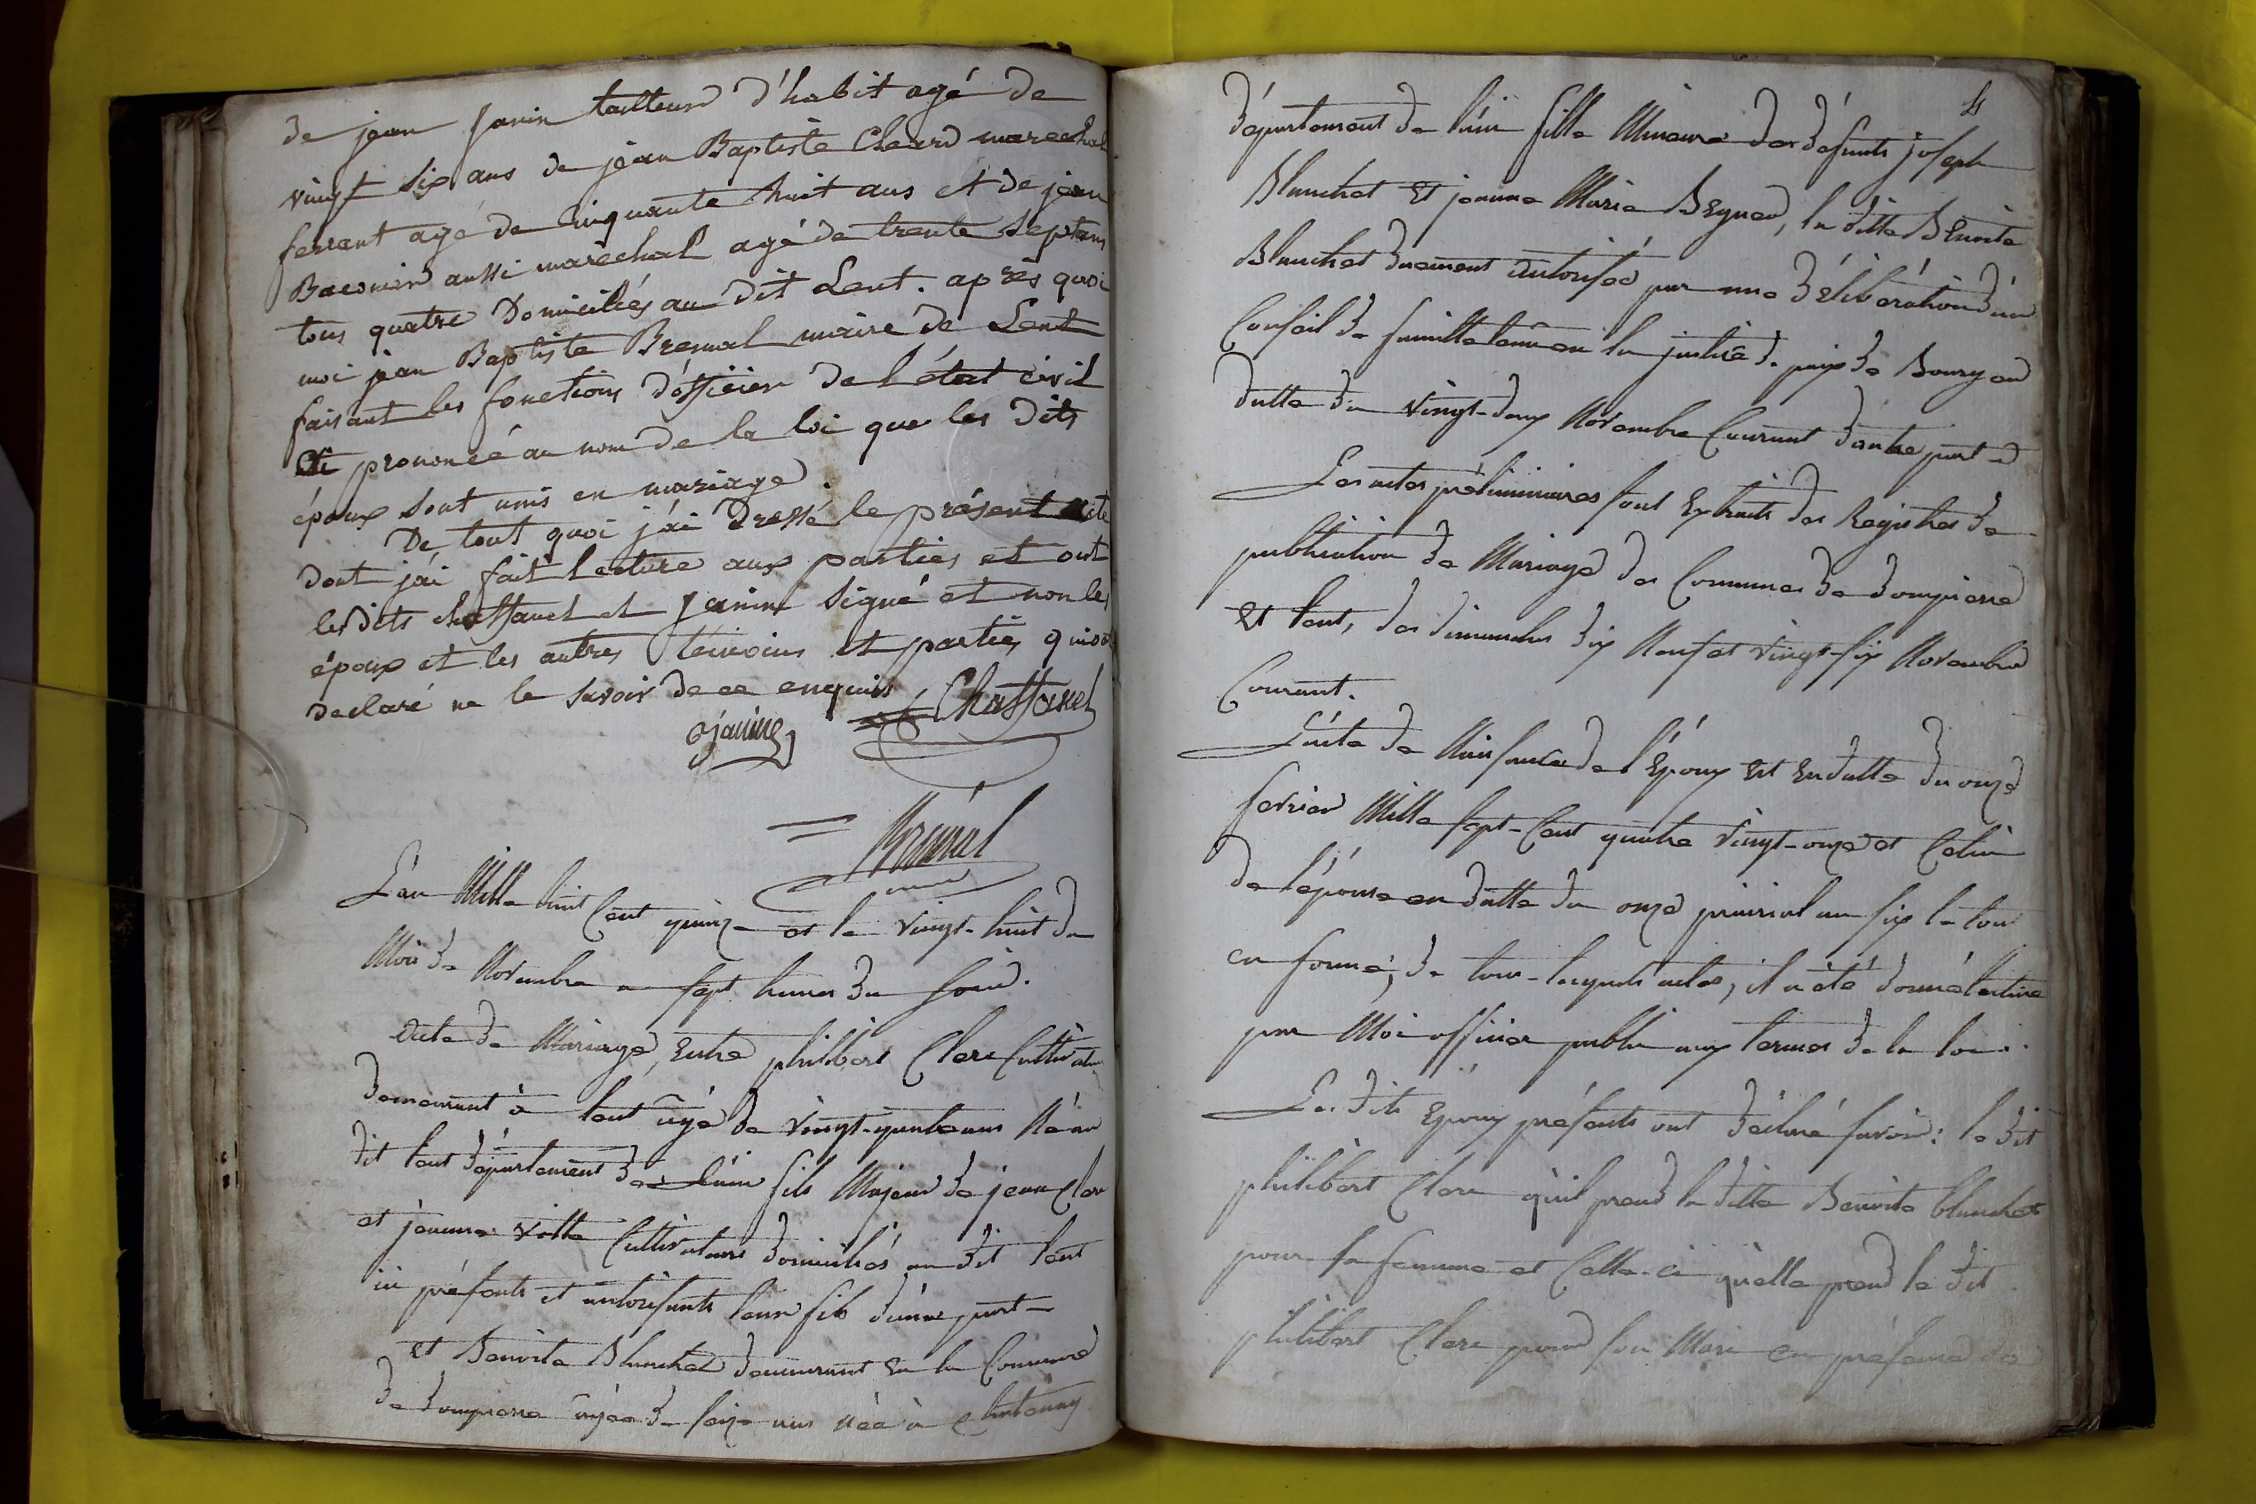 de jean janin tailleur d'habit agé de
vingt six ans de jean Baptiste Cheard marechal
ferrant agé de cinquante huit ans et de jean
aussi maréchal agé de trente sept ans
tous quatre Domiciliés au dit Lent. après quoi
moi jean Baptiste Breval maire de Lent
faisant les fonctions d'officier de l'état civil
ai prononcé au nom de la loi que les dits
époux sont unis en mariage
De tout quoi j'ai Dressé le présent acte
dont j'ai fait Lecture aux parties et ont
les dits chaffanel et janin signé et non les
époux et les autres témoins et parties qui ont
declaré ne le savoir de ce enquis
janin Chaffanel
L'an Mille huit Cent quinze et le vingt-huit du
Mois de Novembre a sept heures du soir.
Acte de Mariage, Entre philibert Clerc Cultivateur
demeurant à lent âgé de vingt-quatre ans Né au
dit lent département de L'ain fils Majeur de jean Clerc
et jeanne vitte Cultivateurs domiciliés au dit lent
ici présents et autorisants leur fils d'une part
et Benoite Blanchet demeurant En la Commune
de dompierre âgée de seize ans née à chatenay
4
département de l'ain fille Mineure des défunts joseph
Blanchet Et jeanne Marie la ditte Benoite
Blanchet duement autorisée par une délibération d'un
Conseil de famille tenu en la justice de paix de Bourg en
datte du vingt-deux Novembre Courant d'autre part
Les actes préliminaires sont Extraits des Registres de
publication de Mariage des Communes de dompierre
Et lent, des dimanches dix Neuf et vingt-six Novembre
Courant.
L'acte de Naissance de l'Epoux Est En datte du onze
fevrier Mille sept-Cent quatre vingt-onze et Celui
de l'épouse en datte du onze prairial an six le tout
en forme; de tous-lesquels actes, il a été donné lecture
par Moi officier public aux termes de la loi.
Les dits Epoux présents ont déclaré savoir: le dit
philibert Clerc qu'il prend la ditte Benoite blanchet
pour sa femme et Celle-ci qu'elle prend le dit
philibert Clerc pour son Mari en présence de